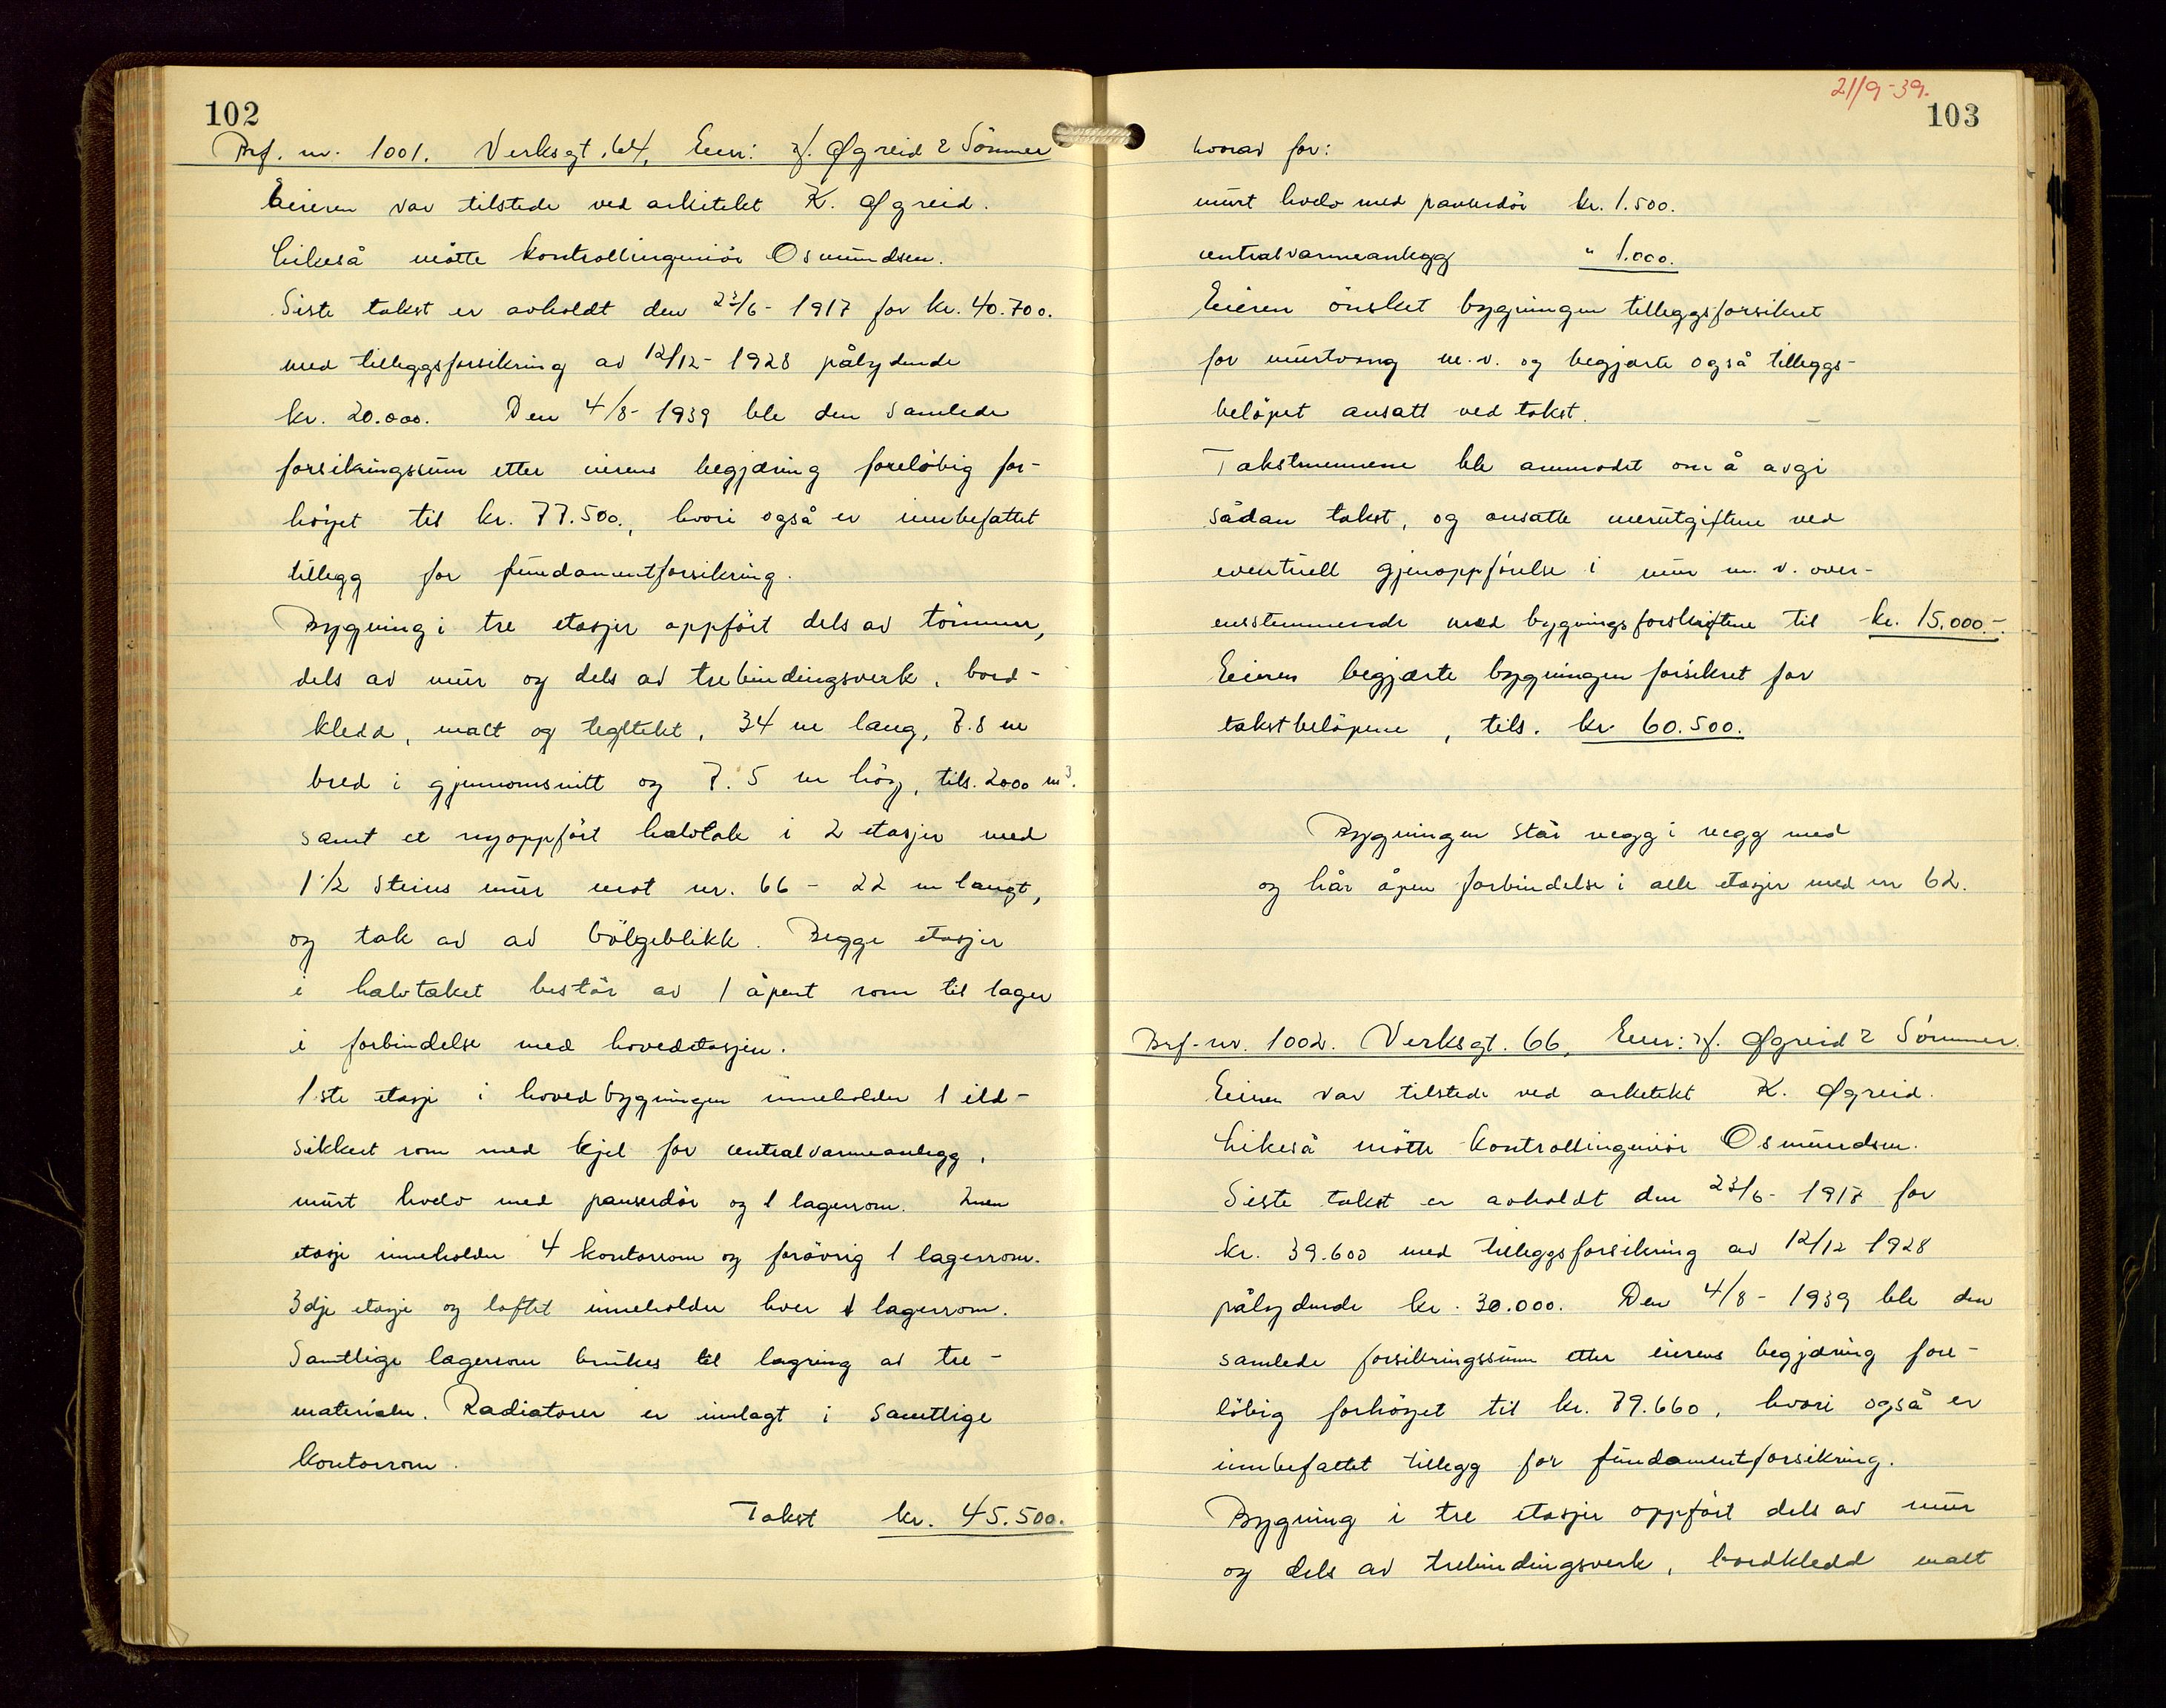 102
Brf. nr. 1001. Verksgt. 64, Eier: f. Øgreid & Sönner
Eieren var tilstede ved arkitekt K. Øgreid.
Likeså mötte kontrollingeniör Osmundsen.
Siste takst er avholdt den 23/6-1917 for kr. 40.700.
med tilleggsforsikring av 12/12-1928 pålydende
kr. 20.000. Den 4/8-1939 ble den samlede
forsikringssum etter eierens begjæring foreløbig for-
höyet til kr. 77.500., hvori også er innbefattet
tillegg for fundamentforsikring.
Bygning i tre etasjer oppfört dels av tömmer,
dels av mur og dels av trebindingsverk, bord-
kledd, malt og tegltekt, 34 m lang, 7.8 m
bred i gjennomsnitt og 7.5 m höy, tils. 2000 m³.
samt et nyoppfört halvtak i 2 etasjer med
1 1/2 Steins mur mot nr. 66 - 22 m langt,
og tak av av bölgeblikk. Begge etasjer
i halvtaket består av 1 åpent rom til lager
i forbindelse med hovedetasjen.
1ste etasje i hovedbygningen inneholder 1 ild-
sikkert rom med kjel for centralvarmeanlegg,
murt hvelv med panserdör og 1 lagerrom. 2nen
etasje inneholder 4 kontorrom og forövrig 1 lagerrom.
3dje etasje og loftet inneholder hver 1 lagerrom.
Samtlige lagerrom brukes til lagring av tre-
materialer. Radiatorer er innlagt i samtlige
kontorrom.
Takst kr. 45.500.
21/9-39.
103
hvorav for:
murt hvelv med panserdör kr. 1.500.
centralvarmeanlegg " 1.000.
Eieren önsket bygningen tilleggsforsikret
for murtvang m.v. og begjærte også tilleggs-
belöpet ansatt ved takst.
Takstmennene ble anmodet om å avgi
sådan takst, og ansatte merutgiftene ved
eventuell gjenoppförelse i mur m.v. over-
ensstemmende med bygningsforskriftene til kr. 15.000.-
Eieren begjærte bygningen forsikret for
takstbelöpene, tils. kr 60.500.
Bygningen står vegg i vegg med
og har åpen forbindelse i alle etasjer med nr 62.
Brf-nr. 1002. Verksgt. 66, Eier: f. Øgreid & Sönner.
Eieren var tilstede ved arketekt K. Øgreid.
Likeså mötte kontrollingeniör Osmundsen.
Siste takst er avholdt den 23/6-1917 for
kr. 39.600 med tilleggsforsikring av 12/12 1928
pålydende kr. 30.000. Den 4/8-1939 ble den
samlede forsikringssum etter eierens begjæring fore-
löbig forhöyet til kr. 79.660, hvori også er
innbefattet tillegg for fundamentforsikring.
Bygning i tre etasjer oppfört dels av mur
og dels av trebindingsverk, bordkledd malt